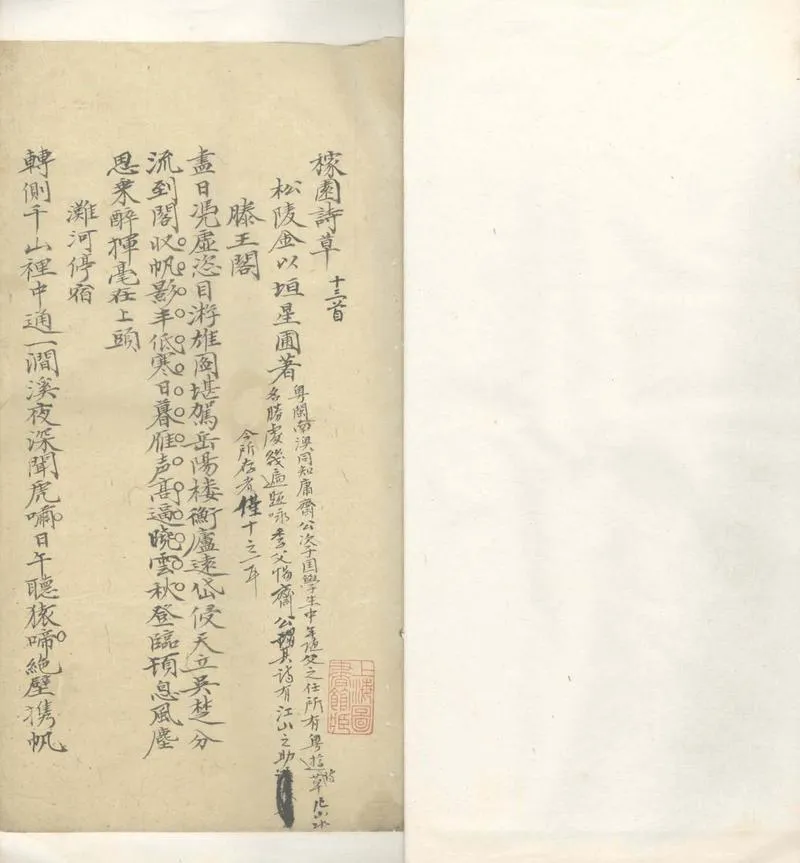 稼園詩草 十三首
松陵金以垣星圃著
粤閩南澳同知庸齋公次子国學生中年随父之任所有粤遊詩草凡山水
名勝處幾遍題咏季父惕齋公謂其詩有江山之助
今所存者僅十之一耳
滕王閣
盡日憑虛恣目游雄圖堪駕岳陽楼衡廬遠岱侵天立吳楚分
流到閣收帆影半低寒日暮雁声高逼曉雲秋登臨頓息風塵
思衆醉揮毫在上頭
灘河停宿
轉側千山裡中通一澗溪夜深聞虎嘯日午聽猿啼絕壁携帆
上海圖書館藏